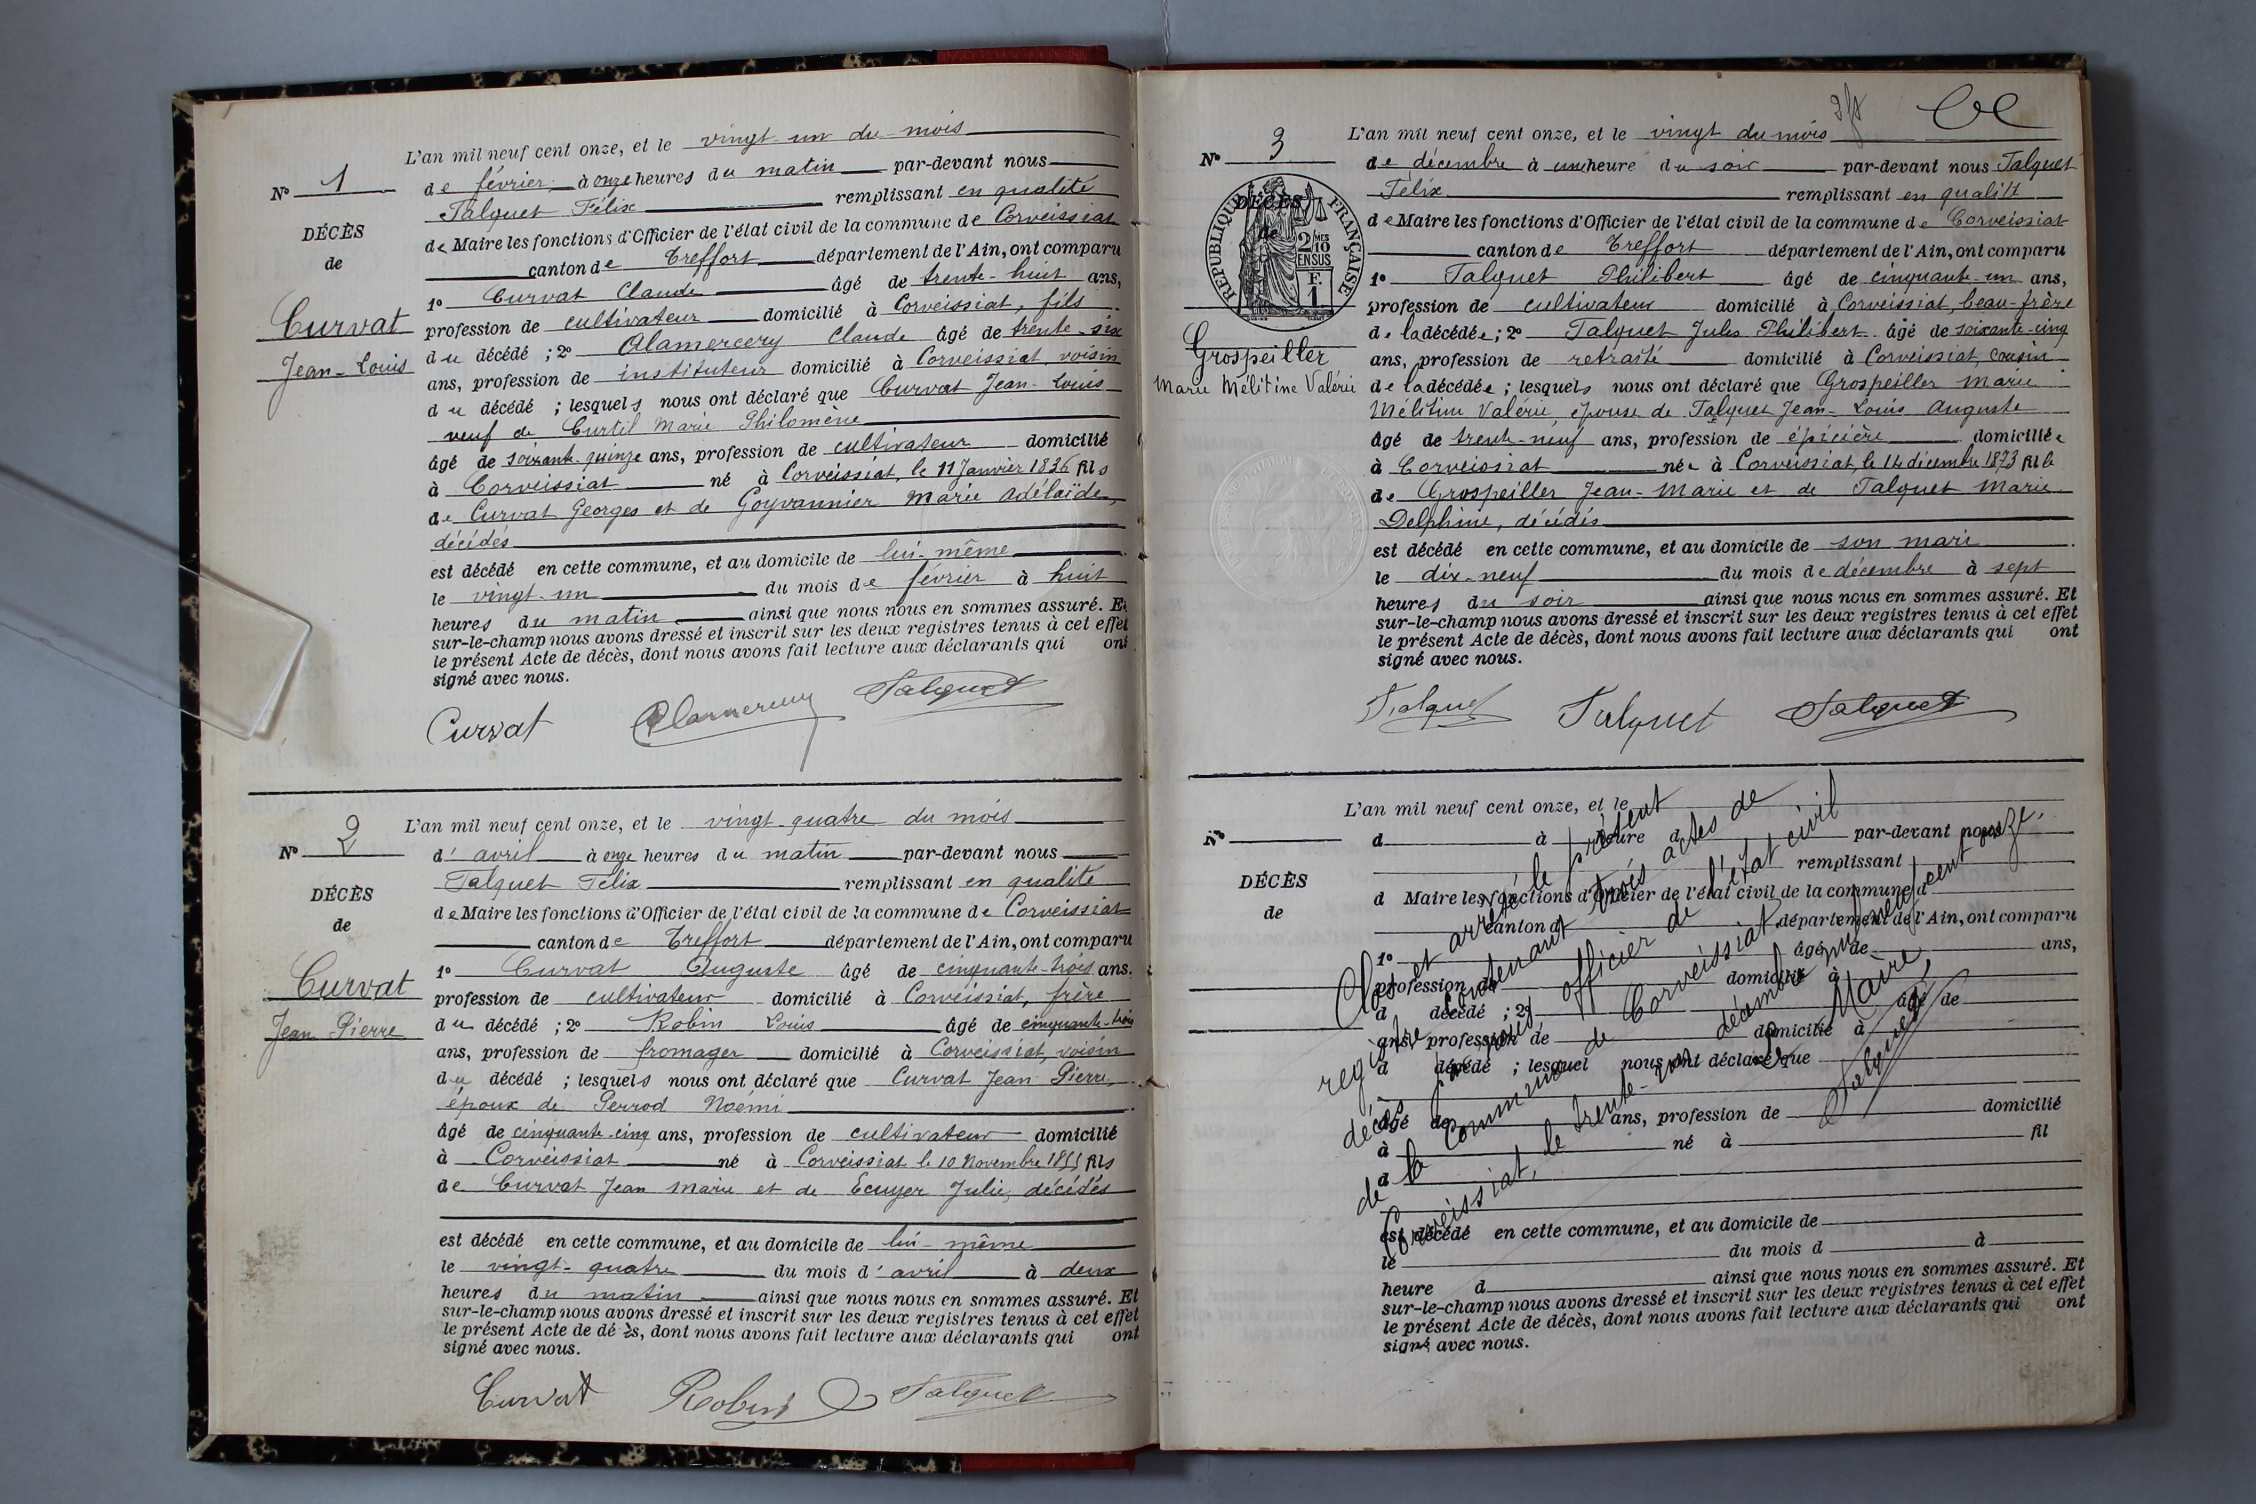 N° 1
DÉCÈS
de
Curvat
Jean-Louis
L'an mil neuf cent onze, et le vingt un du mois
de février, à onze heures du matin par-devant nous
Talquet Félix remplissant en qualité
de Maire les fonctions d'Officier de l'état civil de la commune de Corveissiat
canton de Treffort département de l'Ain, ont comparu
1° Curvat Claude âgé de trente-huit ans,
profession de cultivateur domicilié à Corveissiat, fils
du décédé ; 2° Alamercery Claude âgé de trente-six
ans, profession de instituteur domicilié à Corveissiat, voisin
du décédé ; lesquels nous ont déclaré que Curvat Jean-Louis
veuf de Curtil Marie Philomène
âgé de soixante-quinze ans, profession de cultivateur domicilié
à Corveissiat né à Corveissiat, le 11 Janvier 1836 fils
de Curvat Georges et de Goyvannier Marie Adélaïde,
décédés
est décédé en cette commune, et au domicile de lui-même
le vingt-un du mois de février à huit
heures du matin ainsi que nous nous en sommes assuré. Et
sur-le-champ nous avons dressé et inscrit sur les deux registres tenus à cet effet
le présent Acte de décès, dont nous avons fait lecture aux déclarants qui ont
signé avec nous.
Curvat Alamercery Talquet
N° 2
DÉCÈS
de
Curvat
Jean Pierre
L'an mil neuf cent onze, et le vingt-quatre du mois
d'avril à onze heures du matin par-devant nous
Talquet Félix remplissant en qualité
de Maire les fonctions d'Officier de l'état civil de la commune de Corveissiat
canton de Treffort département de l'Ain, ont comparu
1° Curvat Auguste âgé de cinquante-trois ans.
profession de cultivateur domicilié à Corveissiat, frère
du décédé ; 2° Robin Louis âgé de cinquante-trois
ans, profession de fromager domicilié à Corveissiat, voisin
du décédé ; lesquels nous ont déclaré que Curvat Jean Pierre,
époux de Perrod Noémi
âgé de cinquante-cinq ans, profession de cultivateur domicilié
à Corveissiat né à Corveissiat le 10 Novembre 1855 fils
de Curvat Jean Marie et de Ecuyer Julie, décédés
est décédé en cette commune, et au domicile de lui-même
le vingt-quatre du mois d'avril à deux
heures du matin ainsi que nous nous en sommes assuré. Et
sur-le-champ nous avons dressé et inscrit sur les deux registres tenus à cet effet
le présent Acte de dé ès, dont nous avons fait lecture aux déclarants qui ont
signé avec nous.
Curvat Robin Talquet
N° 3
DÉCÈS
de
RÉPUBLIQUE FRANÇAISE
2/10 MES
EN SUS
1 F.
Grospeiller
Marie Mélitine Valérie
L'an mil neuf cent onze, et le vingt du mois
de décembre à une heure du soir par-devant nous Talquet
Félix remplissant en qualité
de Maire les fonctions d'Officier de l'état civil de la commune de Corveissiat
canton de Treffort département de l'Ain, ont comparu
1° Talquet Philibert âgé de cinquante-un ans,
profession de cultivateur domicilié à Corveissiat, beau-frère
de la décédée ; 2° Talquet Jules Philibert âgé de soixante-cinq
ans, profession de retraité domicilié à Corveissiat, cousin
de la décédée ; lesquels nous ont déclaré que Grospeiller Marie
Mélitine Valérie, épouse de Talquet Jean-Louis Auguste
âgé de trente-neuf ans, profession de épicière domiciliée
à Corveissiat née à Corveissiat, le 14 décembre 1873 fille
de Grospeiller Jean-Marie et de Talquet Marie
Delphine, décédés
est décédé en cette commune, et au domicile de son mari
le dix-neuf du mois de décembre à sept
heures du soir ainsi que nous nous en sommes assuré. Et
sur-le-champ nous avons dressé et inscrit sur les deux registres tenus à cet effet
le présent Acte de décès, dont nous avons fait lecture aux déclarants qui ont
signé avec nous.
Talquet Talquet Talquet
N°
DÉCÈS
de
L'an mil neuf cent onze, et le
d à heure d par-devant nous
remplissant
d Maire les fonctions d'Officier de l'état civil de la commune d
canton d département de l'Ain, ont comparu
1° âgé de ans,
profession de domicilié à
d décédé ; 2° âgé de
ans, profession de domicilié à
d décédé ; lesquel nous ont déclaré que
âgé de ans, profession de domicilié
à né à fil
d
est décédé en cette commune, et au domicile de
le du mois d à
heure d ainsi que nous nous en sommes assuré. Et
sur-le-champ nous avons dressé et inscrit sur les deux registres tenus à cet effet
le présent Acte de décès, dont nous avons fait lecture aux déclarants qui ont
signé avec nous.
Clos et arrêté le présent
registre contenant trois actes de
décès par nous officier de l'état civil
de la commune de Corveissiat
Corveissiat, le trente-un décembre mil neuf cent onze.
Le Maire,
Talquet